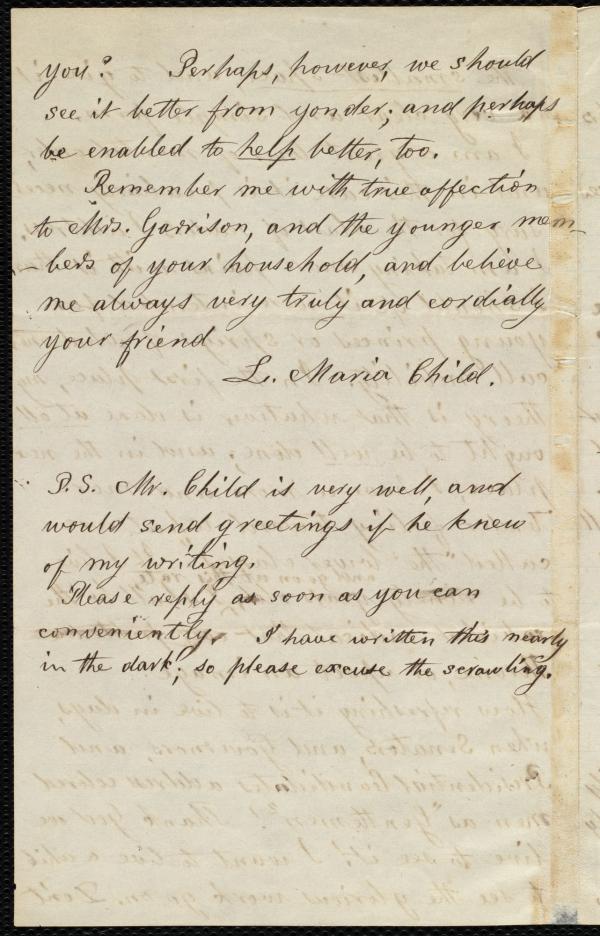 you? Perhaps, however, we should
see it better from yonder; and perhaps
be enabled to help better, too.
Remember me with true affection
to Mrs. Garrison, and the younger mem-
-bers of your household, and believe
me always very truly and cordially
your friend
L. Maria Child.
P.S. Mr. Child is very well, and
would send greetings if he knew
of my writing.
Please reply as soon as you can
conveniently. I have written this nearly
in the dark; so please excuse the scrawling.